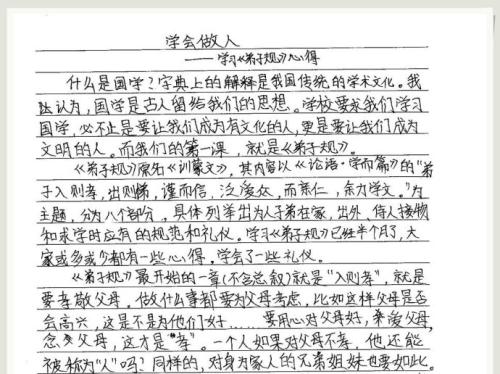 学会做人
——学习《弟子规》心得
什么是国学？字典上的解释是我国传统的学术文化。我
认为，国学是古人留给我们的思想。学校要求我们学习
国学，必不止是要让我们成为有文化的人，更是要让我们成为
文明的人。而我们的第一课，就是《弟子规》。
《弟子规》原名《训蒙文》，其内容以《论语·学而篇》的“弟
子入则孝，出则悌，谨而信，泛爱众，而亲仁，余力学文。”为
主题，分为八个部分，具体列举出为人子弟在家，出外，侍人接物
和求学时应有的规范和礼仪。学习《弟子规》已经半个月了，大
家或多或少都有一些心得，学会了一些礼仪。
《弟子规》最开始的一章(不含总叙)就是“入则孝”，就是
要孝敬父母，做什么事都要为父母考虑，比如这样父母是否
会高兴，这是不是为他们好……要用心对父母好，亲爱父母，
念父母，这才是“孝”。一个人如果对父母不孝，他还能
被称为“人”吗？同样的，对身为家人的兄弟姐妹也要如此。